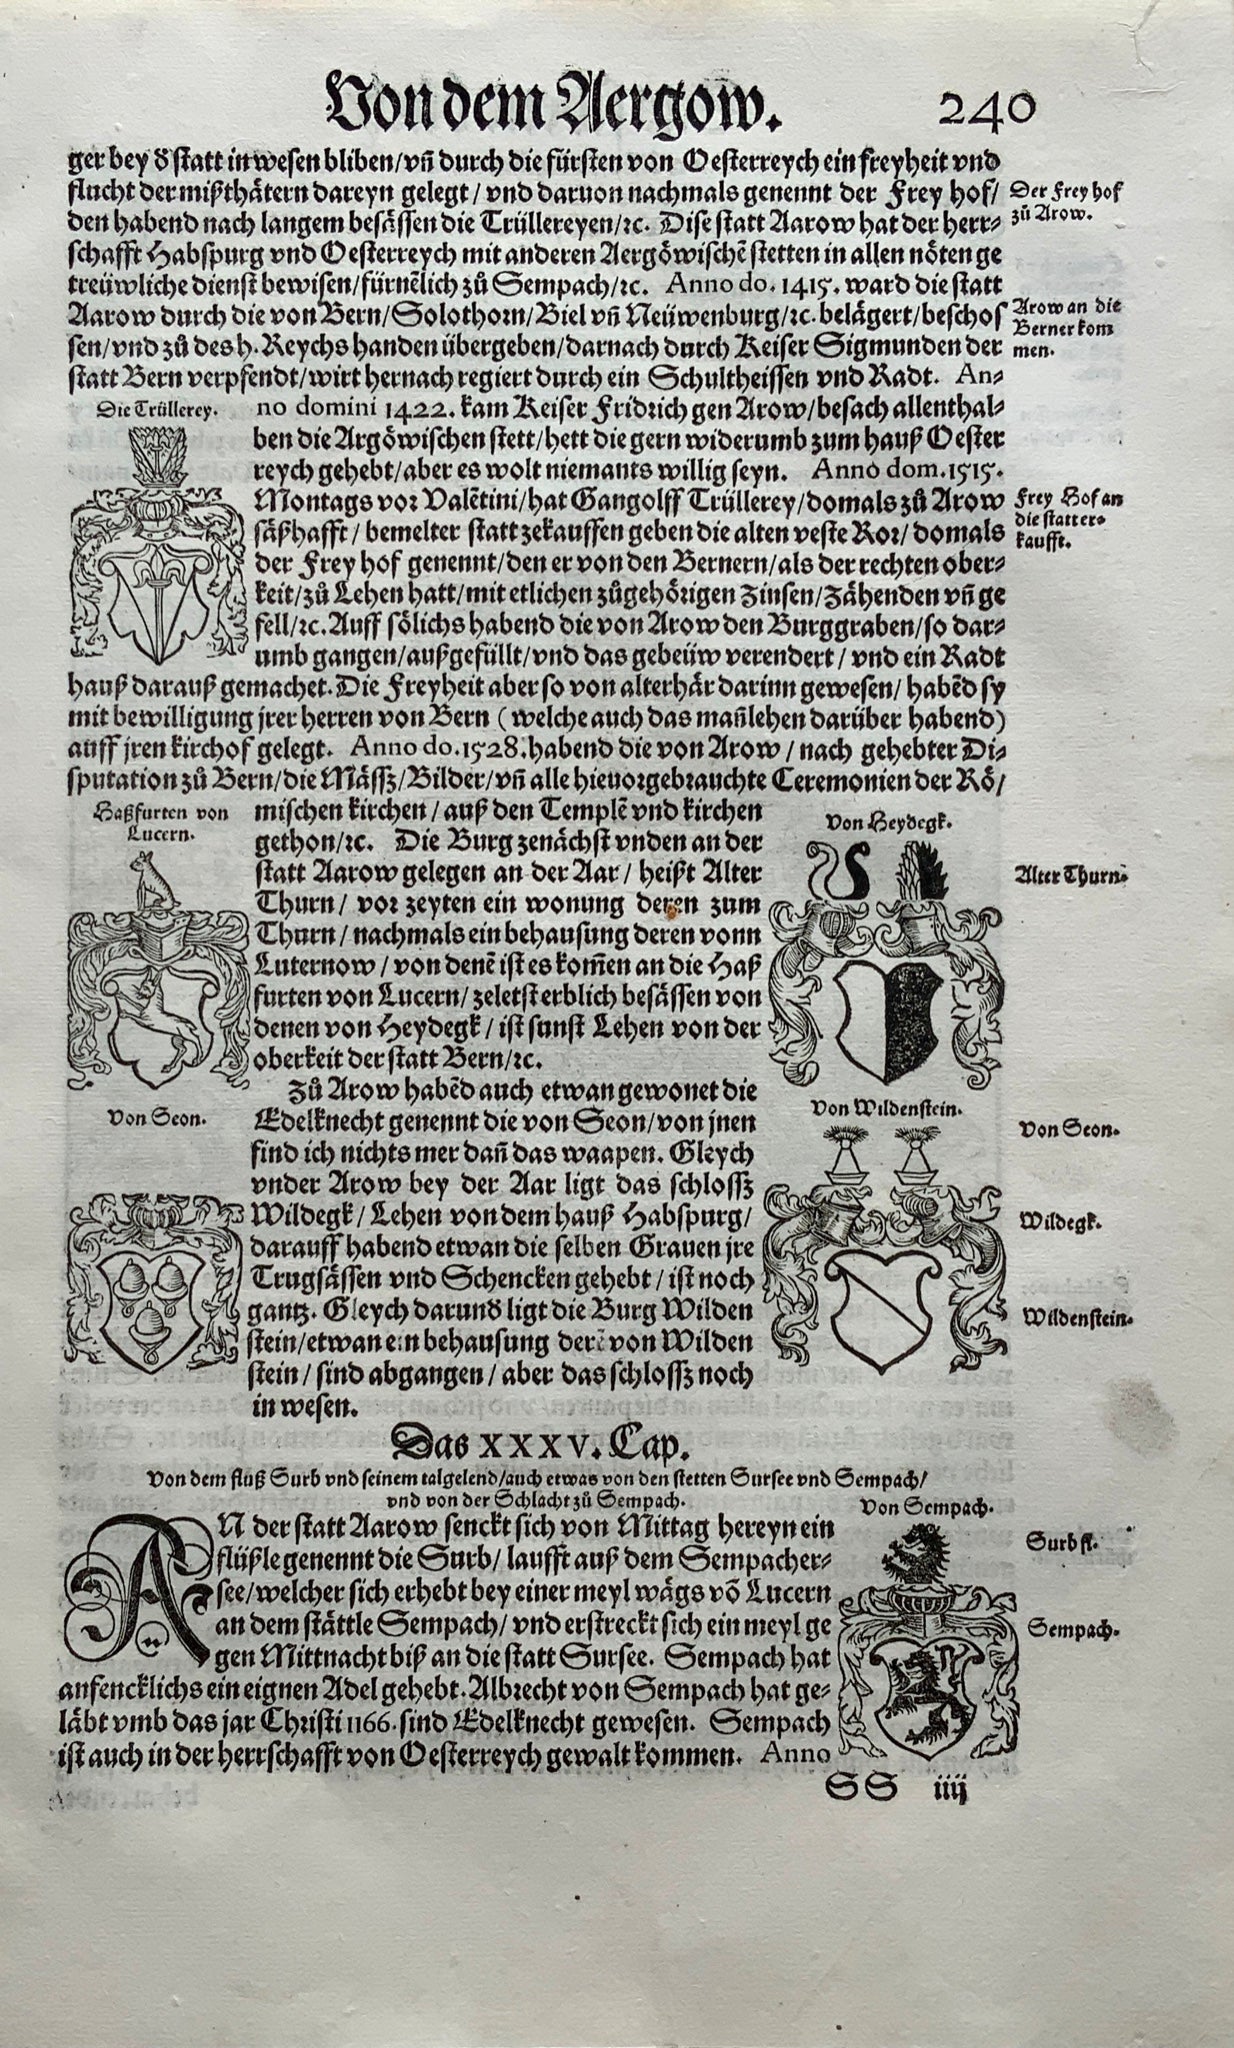 Von dem Aergow. 240
ger bey d̕ statt in wesen bliben/vñ durch die fürsten von Oesterreych ein freyheit vnd
flucht der mißthätern dareyn gelegt/ vnd daruon nachmals genennt der Frey hof/
Der Frey hof
zů Arow.
den habend nach langem besässen die Trüllereyen/ꝛc. Dise statt Aarow hat der herr⸗
schafft Habspurg vnd Oesterreych mit anderen Aergöwischē stetten in allen nöten ge
treüwliche dienst bewisen/fürnēlich zů Sempach/ꝛc. Anno do. 1415. ward die statt
Aarow durch die von Bern/Solothorn/Biel vñ Neüwenburg/ꝛc. belägert/beschos
Arow an die
Berner kom
men.
sen/vnd zů des h. Reychs handen übergeben/darnach durch Keiser Sigmunden der
statt Bern verpfendt/wirt hernach regiert durch ein Schultheissen vnd Radt. An⸗
Die Trüllerey.
no domini 1422. kam Keiser Fridrich gen Arow/besach allenthal⸗
ben die Argöwischen stett/hett die gern widerumb zum hauß Oester
reych gehebt/aber es wolt niemants willig seyn. Anno dom. 1515.
Montags vor Valētini/hat Gangolff Trüllerey/domals zů Arow
Frey Hof an
die statt er⸗
kaufft.
säßhafft/ bemelter statt zekauffen geben die alten veste Ror/ domals
der Frey hof genennt/den er von den Bernern/als der rechten ober⸗
keit/zů Lehen hatt/mit etlichen zůgehörigen Zinsen/Zähenden vñ ge
fell/ꝛc. Auff sölichs habend die von Arow den Burggraben/so dar⸗
umb gangen/außgefüllt/vnd das gebeüw verendert/ vnd ein Radt
hauß darauß gemachet. Die Freyheit aber so von alterhär darinn gewesen/ habēd sy
mit bewilligung jrer herren von Bern (welche auch das mañlehen darüber habend)
auff jren kirchof gelegt. Anno do. 1528. habend die von Arow/ nach gehebter Di⸗
sputation zů Bern/die Mässz/Bilder/vñ alle hieuorgebrauchte Ceremonien der Rö/
Haßfurten von
Lucern.
mischen kirchen/ auß den Templē vnd kirchen
gethon/ꝛc. Die Burg zenächst vnden an der
Von Heydegk.
statt Aarow gelegen an der Aar/ heißt Alter
Alter Thurn.
Thurn/ vor zeyten ein wonung deren zum
Thurn/ nachmals ein behausung deren vonn
Luternow/ von denē ist es kom̃en an die Haß
furten von Lucern/ zeletst erblich besässen von
denen von Heydegk/ ist sunst Lehen von der
oberkeit der statt Bern/ꝛc.
Zů Arow habēd auch etwan gewonet die
Von Seon.
Von Wildenstein.
Edelknecht genennt die von Seon/von jnen
Von Seon.
find ich nichts mer dañ das waapen. Gleych
vnder Arow bey der Aar ligt das schlossz
Wildegk/ Lehen von dem hauß Habspurg/
Wildegk.
darauff habend etwan die selben Grauen jre
Trugsässen vnd Schencken gehebt/ ist noch
gantz. Gleych darund̕ ligt die Burg Wilden
Wildenstein.
stein/etwan ein behausung derē von Wilden
stein/ sind abgangen/ aber das schlossz noch
in wesen.
Das XXXV. Cap.
Von dem fluß Surb vnd seinem talgelend/auch etwas von den stetten Sursee vnd Sempach/
vnd von der Schlacht zů Sempach.
Von Sempach.
AN der statt Aarow senckt sich von Mittag hereyn ein
flüßle genennt die Surb/ laufft auß dem Sempacher⸗
Surb fl.
see/welcher sich erhebt bey einer meyl wägs vō Lucern
an dem stättle Sempach/ vnd erstreckt sich ein meyl ge
Sempach.
gen Mittnacht biß an die statt Sursee. Sempach hat
anfencklichs ein eignen Adel gehebt. Albrecht von Sempach hat ge⸗
läbt vmb das jar Christi 1166. sind Edelknecht gewesen. Sempach
ist auch in der herrschafft von Oesterreych gewalt kommen. Anno
SS iiij